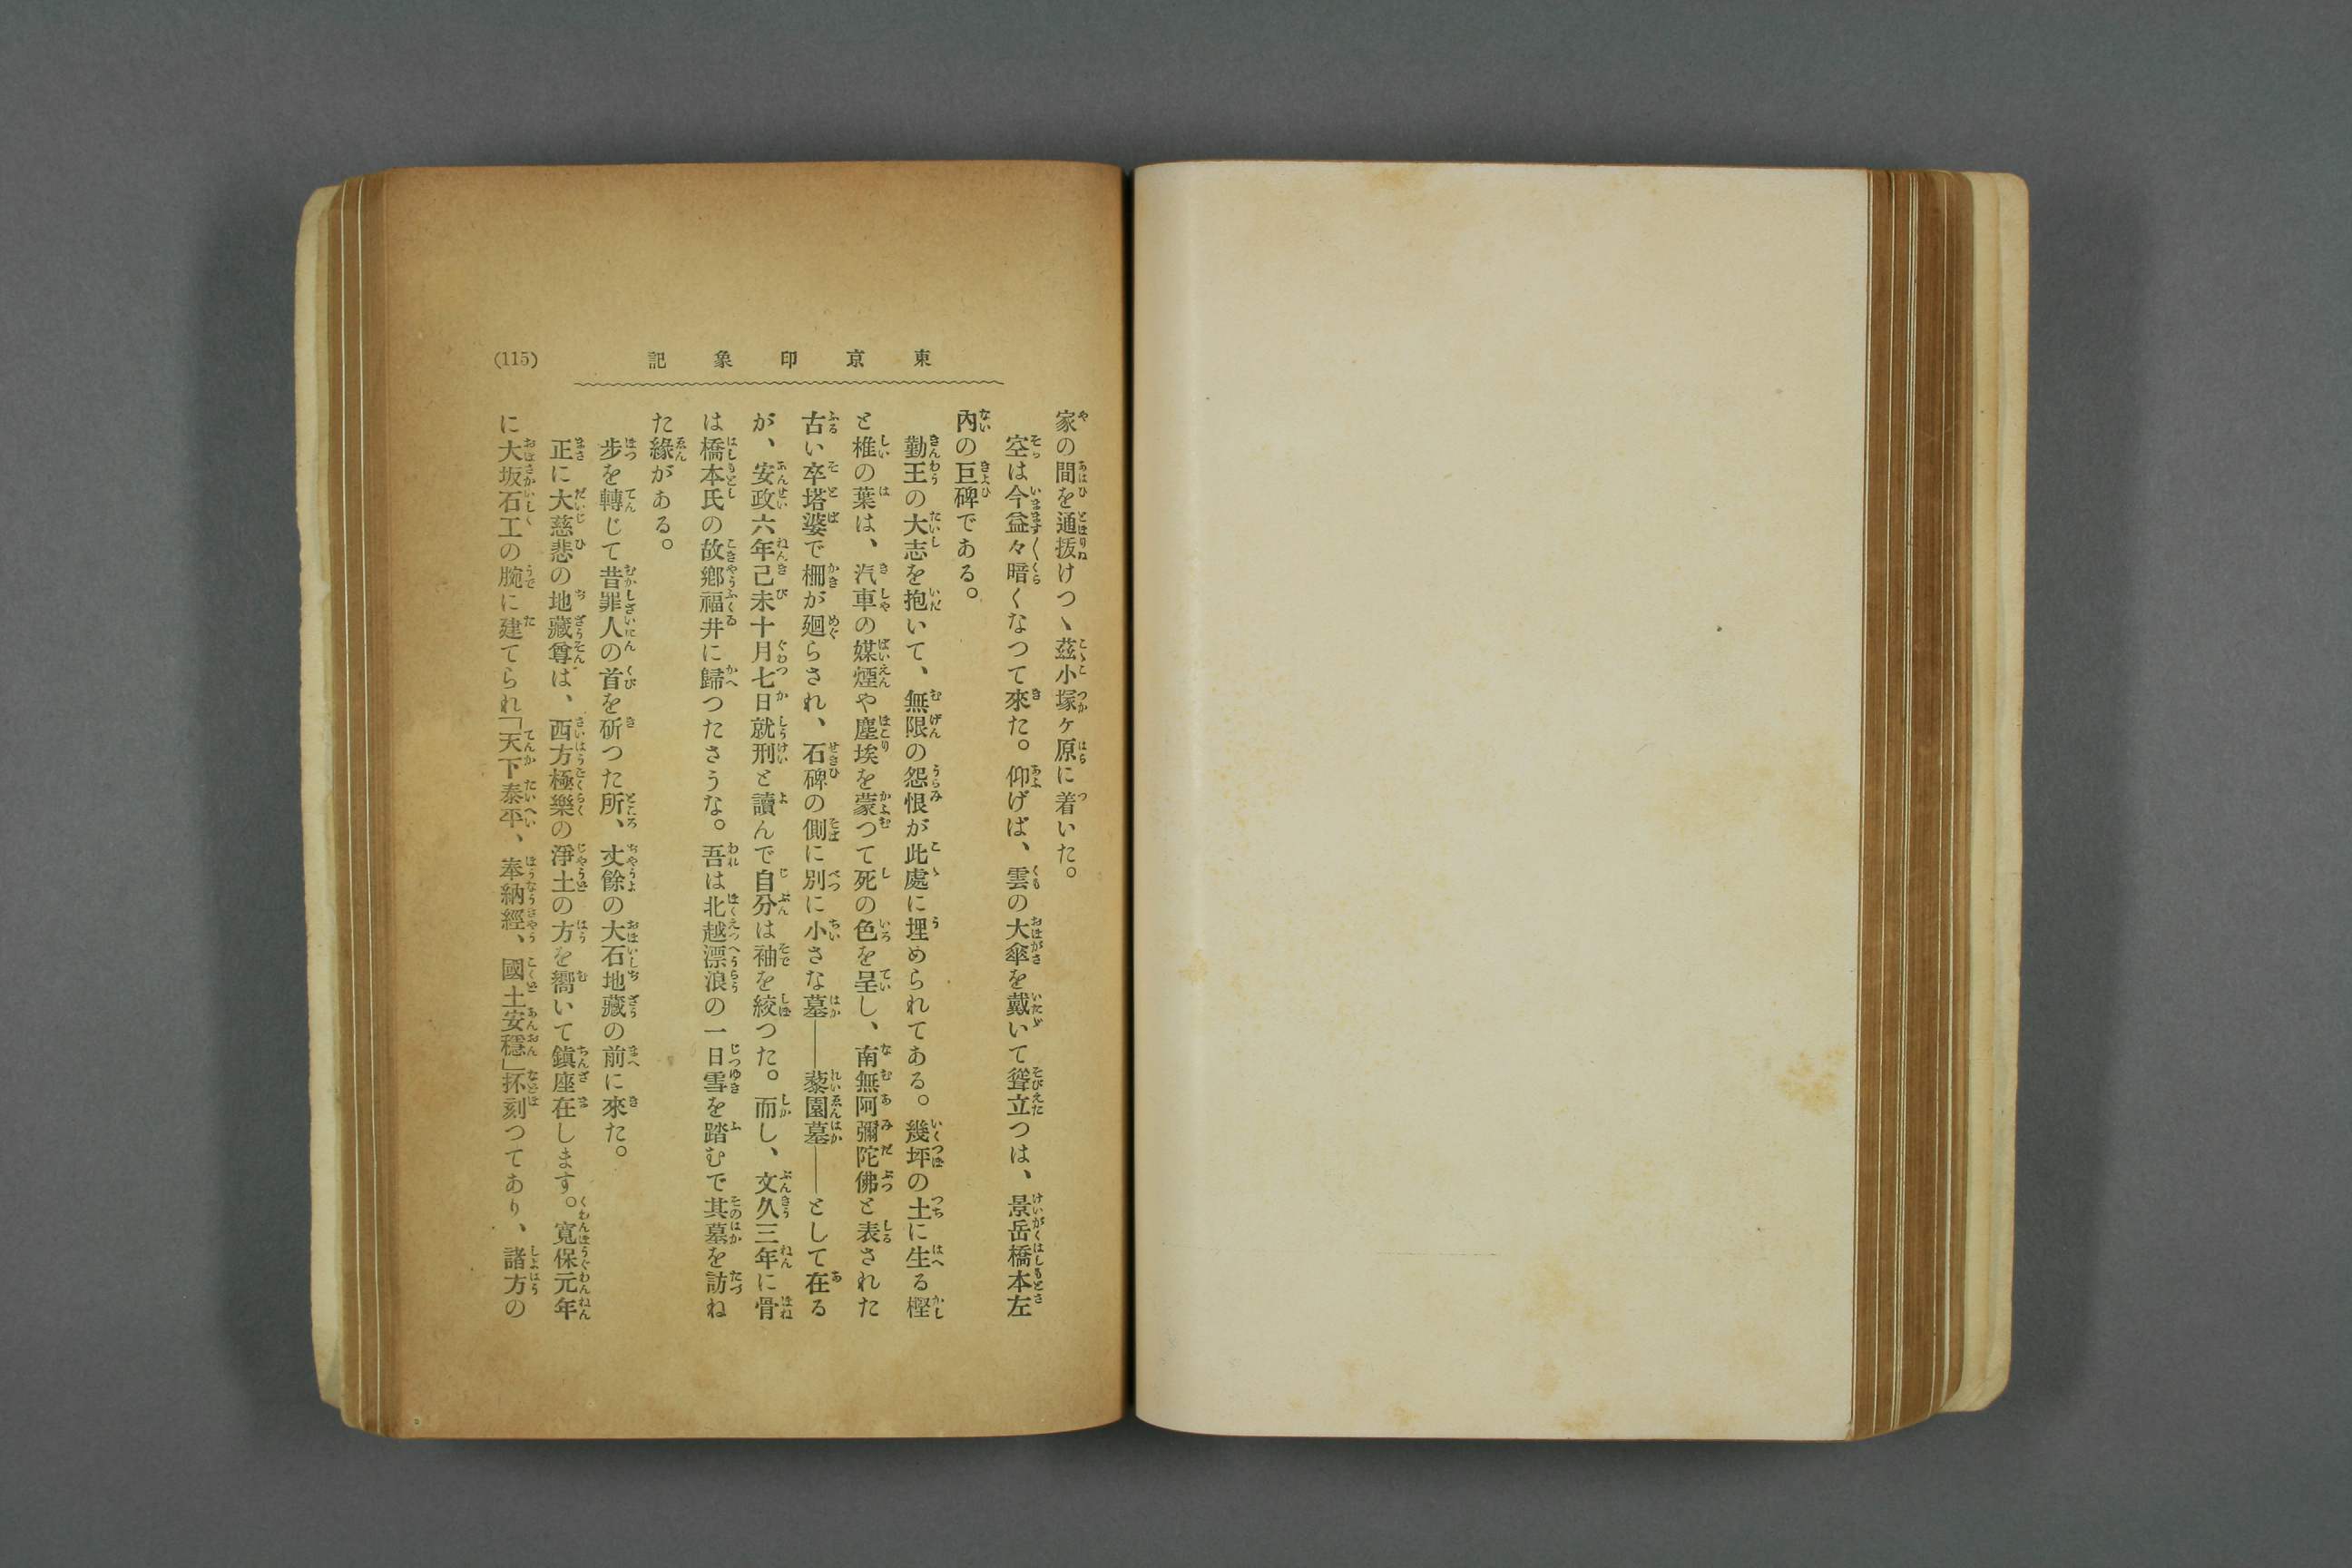 東京印象記
(115)
家の間を通拔けつヽ茲小塚ヶ原に着いた。
空は今益々暗くなつて來た。仰げば、雲の大傘を戴いて聳立つは、景岳橋本左
內の巨碑である。
勤王の大志を抱いて、無限の怨恨が此處に埋められてある。幾坪の土に生る樫
と椎の葉は、汽車の媒煙や塵埃を蒙つて死の色を呈し、南無阿彌陀佛と表された
古い卒塔婆で柵が廻らされ、石碑の側に別に小さな墓――藜園墓――として在る
が、安政六年己未十月七日就刑と讀んで自分は袖を絞つた。而し、文久三年に骨
は橋本氏の故鄕福井に歸つたさうな。吾は北越漂浪の一日雪を踏むで其墓を訪ね
た緣がある。
步を轉じて昔罪人の首を斫つた所、丈餘の大石地藏の前に來た。
正に大慈悲の地藏尊は、西方極樂の淨土の方を嚮いて鎭座在します。寬保元年
に大坂石工の腕に建てられ「天下泰平、奉納經、國土安穩」抔刻つてあり、諸方の